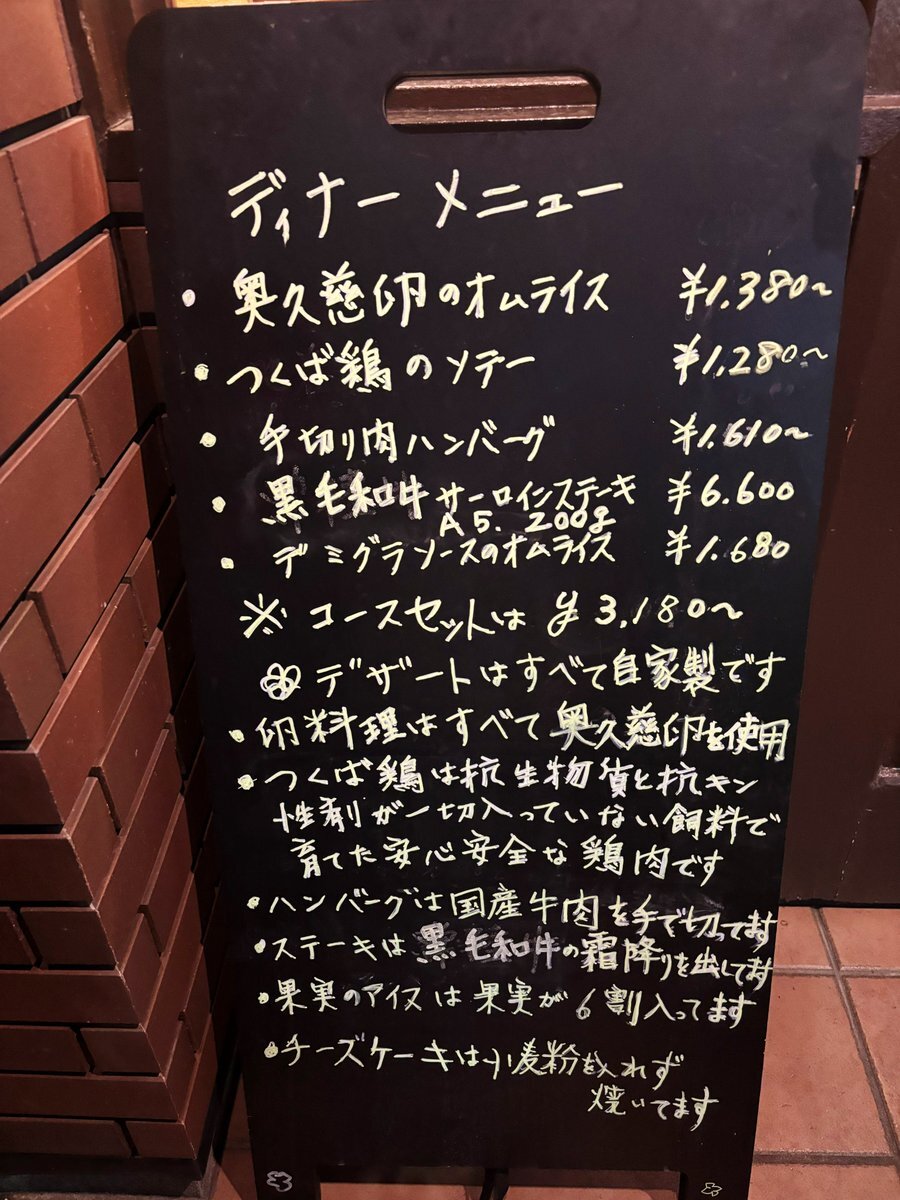 ディナー メニュー
・奥久慈卵のオムライス ¥1.380〜
・つくば鶏のソテー ¥1,280〜
・手切り肉ハンバーグ ¥1.610〜
・黒毛和牛サーロインステーキ ¥6.600
A5. 200g
・デミグラソースのオムライス ¥1.680
※ コースセットは ¥3,180〜
デザートはすべて自家製です
・卵料理はすべて奥久慈卵を使用
・つくば鶏は抗生物質と抗キン
性剤が一切入っていない飼料で
育てた安心安全な鶏肉です
・ハンバーグは国産牛肉を手で切ってます
・ステーキは黒毛和牛の霜降りを出してます
・果実のアイスは果実が6割入ってます
・チーズケーキは小麦粉を入れず
焼いてます